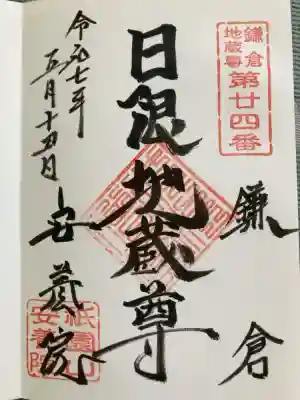 鎌倉
地蔵尊
第廿四番
鎌倉
日限地蔵尊
令和七年
五月十五日
安養院
祇園山
安養院